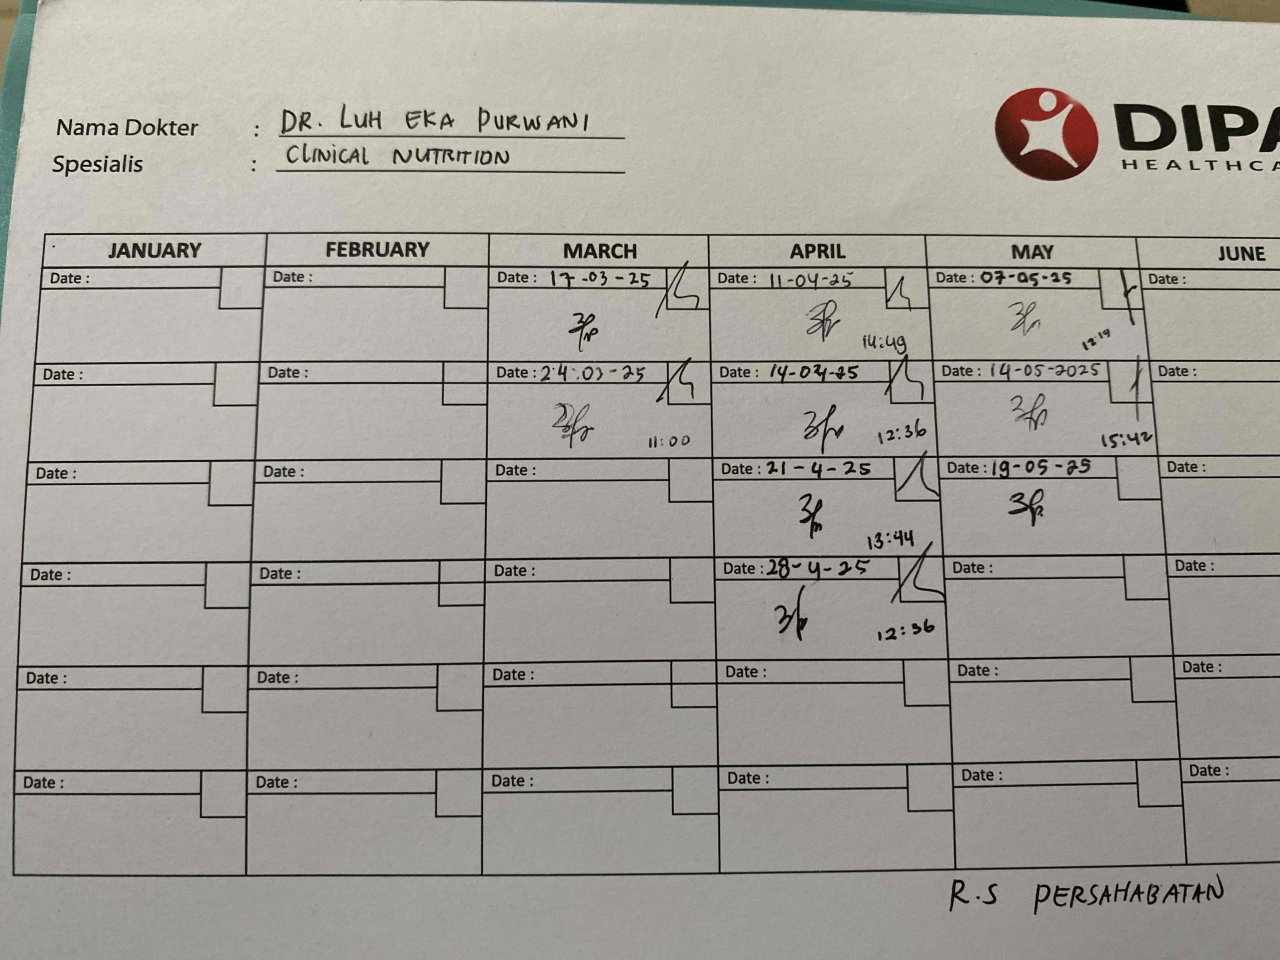 Nama Dokter : DR. LUH EKA PURWANI
Spesialis : CLINICAL NUTRITION
DIPA
HEALTHCA
JANUARY FEBRUARY MARCH APRIL MAY JUNE
Date : Date : Date : 17-03-25 Date : 11-04-25 Date : 07-05-25 Date :
14:49 12:19
Date : Date : Date : 24-03-25 Date : 14-04-25 Date : 14-05-2025 Date :
11:00 12:36 15:42
Date : Date : Date : Date : 21-4-25 Date : 19-05-25 Date :
13:44
Date : Date : Date : Date : 28-4-25 Date : Date :
12:36
Date : Date : Date : Date : Date : Date :
Date : Date : Date : Date : Date : Date :
R.S PERSAHABATAN